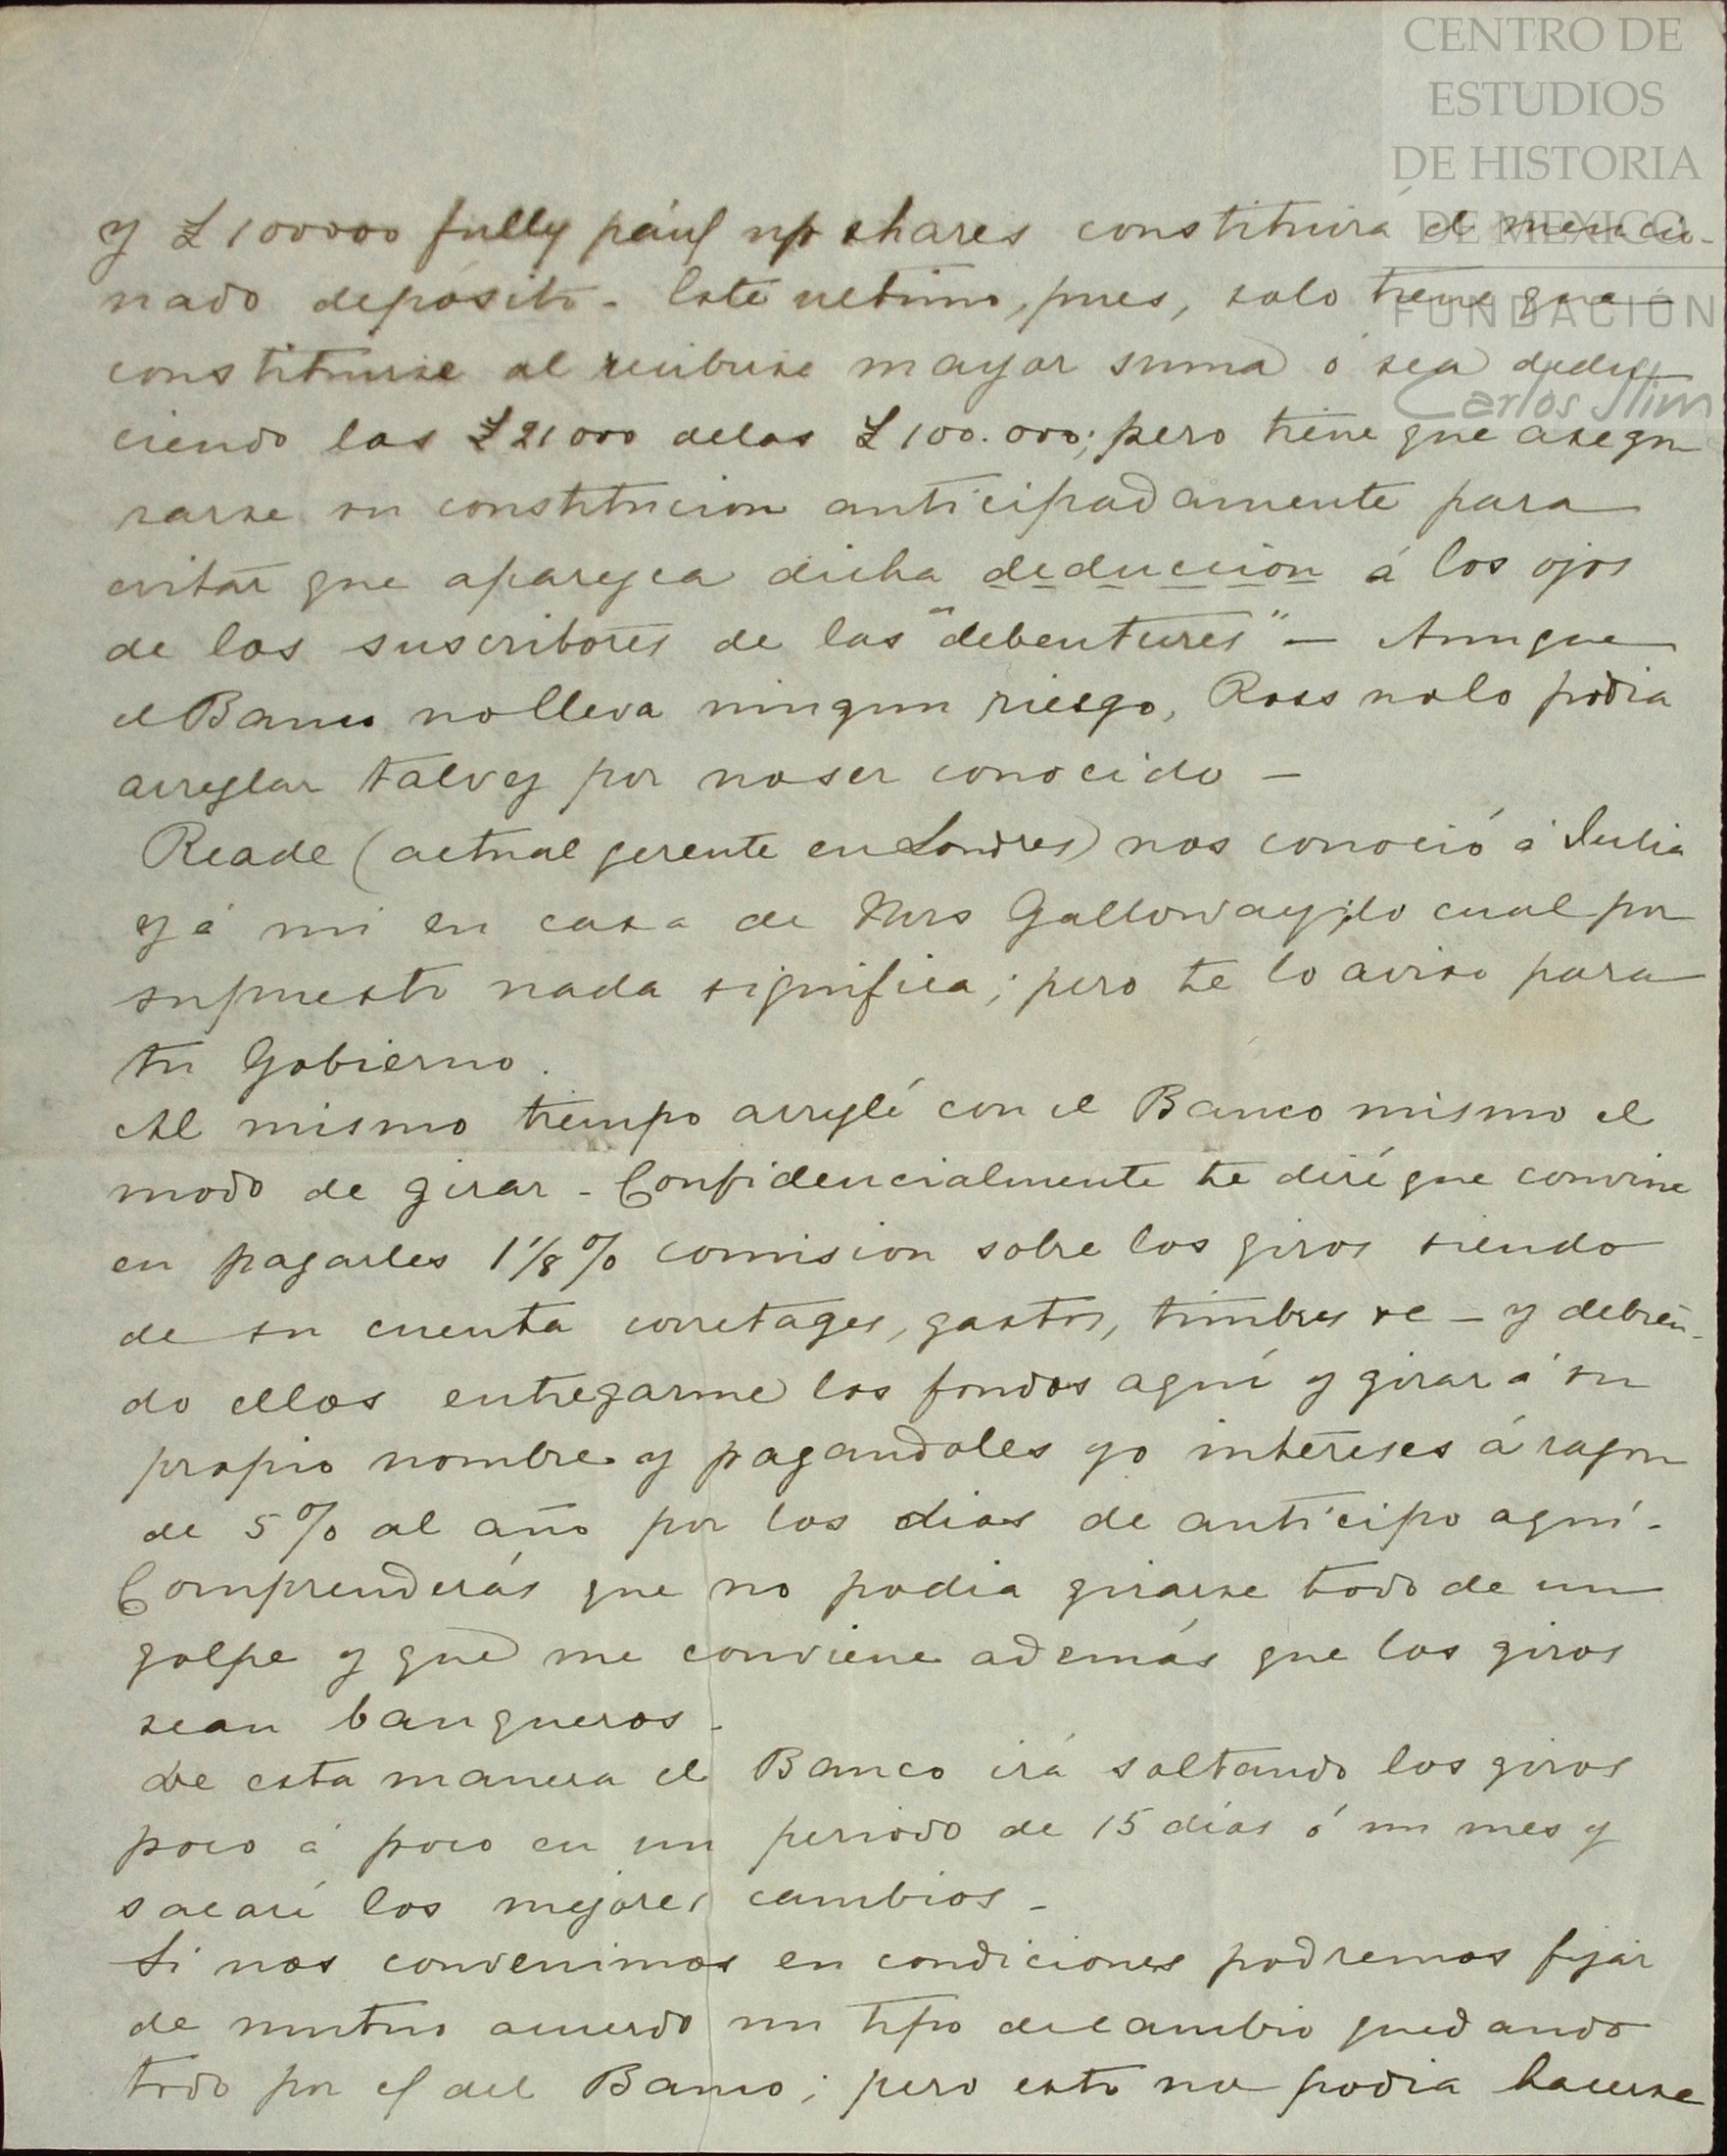 CENTRO DE
ESTUDIOS
DE HISTORIA
DE MEXICO
FUNDACIÓN
Carlos Slim
y £100000 fully paid up shares constituirá el mencio-
nado depósito - Este ultimo, pues, solo tiene que
constituirse al recibirse mayor suma ó sea dedu
ciendo las £21000 delas £100.000; pero tiene que asegu
rarse su constitucion anticipadamente para
evitar que aparezca dicha deduccion á los ojos
de los suscritores de las "debentures" — Aunque
el Banco nolleva ningun riesgo, Ross nolo podia
arreglar talvez por noser conocido —
Reade (actual gerente en Londres) nos conoció á Julia
y á mi en casa de Mrs Galloway; lo cual por
supuesto nada significa; pero te lo aviso para
tu Gobierno.
Al mismo tiempo arreglé con el Banco mismo el
modo de girar - Confidencialmente te diré que convine
en pagarles 1 1/8 % comision sobre los giros siendo
de su cuenta corretages, gastos, timbres &c — y debien-
do ellos entregarme los fondos aquí y girar á su
propio nombre y pagandoles yo intereses á razon
de 5% al año por los dias de anticipo aquí -
Comprenderás que no podia girarse todo de un
golpe y que me conviene además que los giros
sean banqueros -
De esta manera el Banco irá soltando los giros
poco á poco en un periodo de 15 días ó un mes y
sacaré los mejores cambios -
Si nos convenimos en condiciones podremos fijar
de mutuo acuerdo un tipo decambio quedando
todo por del Banco; pero esto no podia hacerse